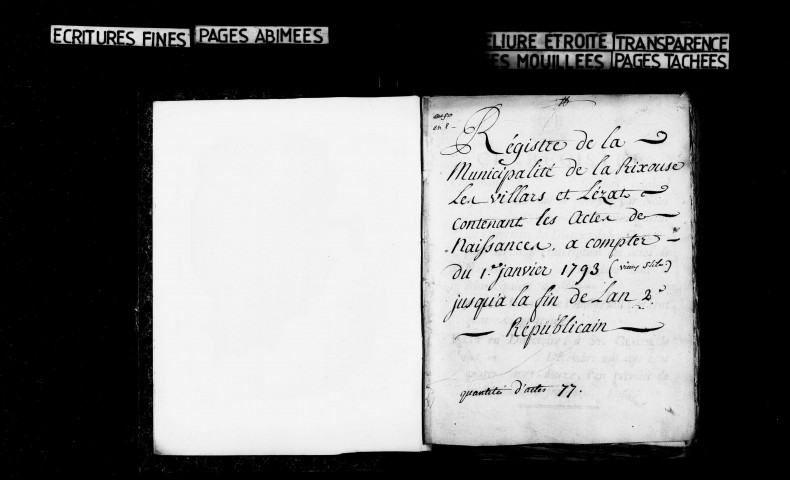 ECRITURES FINES
PAGES ABIMEES
ELIURE ETROITE
TRANSPARENCE
ES MOUILLEES
PAGES TACHEES
Régistre de la
Municipalité de la Rixouse
Les villars et Lézat
contenant les Actes de
Naissances, a compter
du 1.er janvier 1793 (vieux stile)
jusqu'a la fin de Lan 2.e
Républicain
quantité d'actes 77.